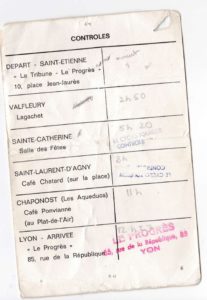 CONTROLES
DEPART - SAINT-ETIENNE
« Le Tribune - Le Progrès »
10, place Jean-Jaurès
VALFLEURY
Lagachet
2h50
SAINTE-CATHERINE
Salle des Fêtes
5h20
CONTROLE
SAINT-LAURENT-D'AGNY
Café Chatard (sur la place)
8h
CHAPONOST (Les Aqueducs)
Café Ponvianne
(au Plat-de-l'Air)
11h
LYON - ARRIVEE
« Le Progrès »
85, rue de la République
LE PROGRÈS
85, rue de la République, 85
LYON